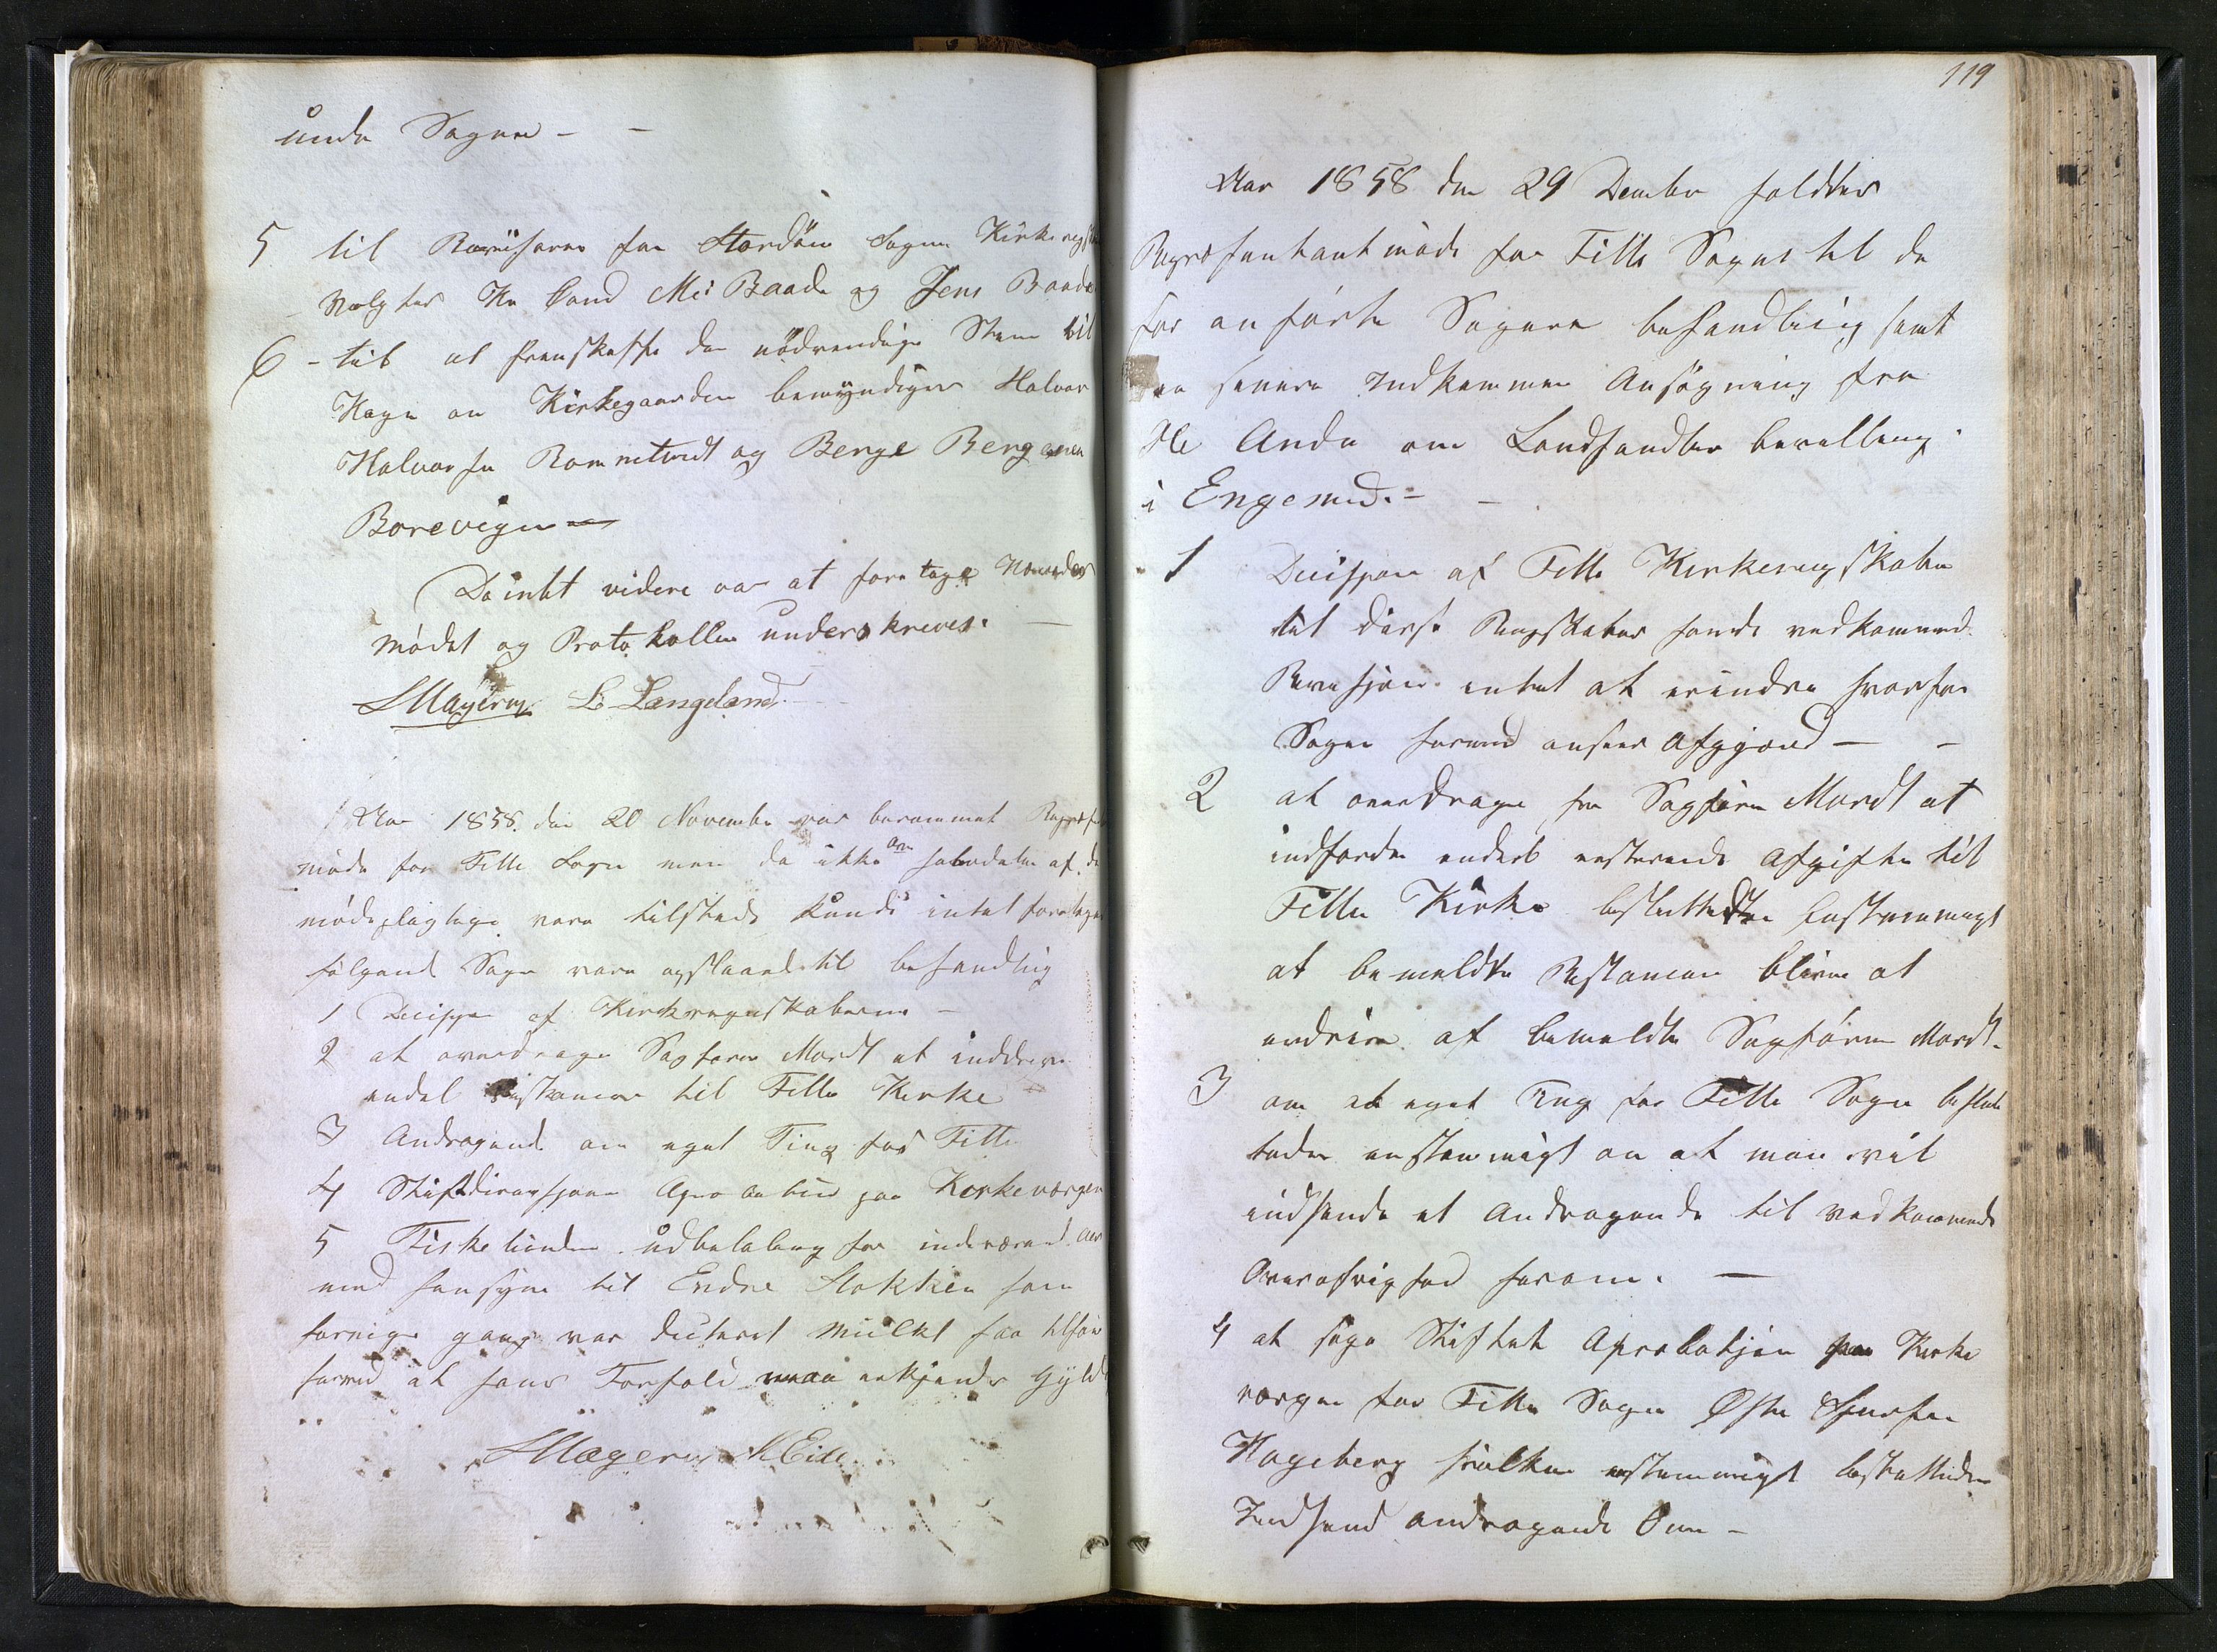 unde Sagen –
5 til Revisorer for Stordöen Sogns Kirkeregsk
Valgtes Hr Cand Mi: Baade og Jens Baade
6 – til at fremskaffe den nödvendige Steen til
Hagen om Kirkegaarden bemyndiges Halvor
Halvorsen Rommetvedt og Berge Bergesen
Borevigen
Da intet videre var at foretage
mödet og Protokollen underskreves. –
SMagerøy L Langeland
Aar 1858. den 20 November var berammet
möde for Fitle Sogn men da ikke over halvdelen af de
mödepligtige vare tilstede kunde intet foretages
fölgende Sager vare opslaaed til behandling
1 Decision af Kirkeregnskaberne –
2 at overdrage Sagförer Mordt at inddrive
endel Restancer til Fitle Kirke
3 Andragende om eget Ting for Fitle
4 Stiftdirectionens Aprobation paa Kirkeværgen
5 Fisketienden udbetaling for indeværende Aar
med hensyn til Endre Stokken som
forrige gang var dicteret Mulkt
at hans Forfald maa erkjendes Gyldig
SMagerøy NEide
119
Aar 1858 den 29 Dember holdtes
Repræsentantmöde for Fitle Sogns til de
för anförte Sagers behandling samt
en senere Indkommen Ansögning fra
Ole Anda om Landhandler bevilling
i Engesund. –
1 Decision af Fitle Kirkeregnskaber
til disse Regnskaber havde vedkommende
Revisjon intet at erindre hvorfor
Sagen hermed ansees Afgjord –
2 at overdrage hr Sagförer Mordt at
indfordre endeel resterende Afgifter til
Fitle Kirke besluttedes Eenstemmigt
at bemeldte Restancer blive at
inddrive af bemeldte Sagförer Mordt.
3 om et eget Ting for Fitle Sogn beslut
tedes enstemmigt om at man vil
indsende et Andragende til vedkommende
Överöfrighed herom. –
4 at söge Stiftets Aprobatjon paa Kirke
værgen for Fitle Sogn Östen
Hageberg hvilket enstemmigt besluttedes
Indsend andragende Om –